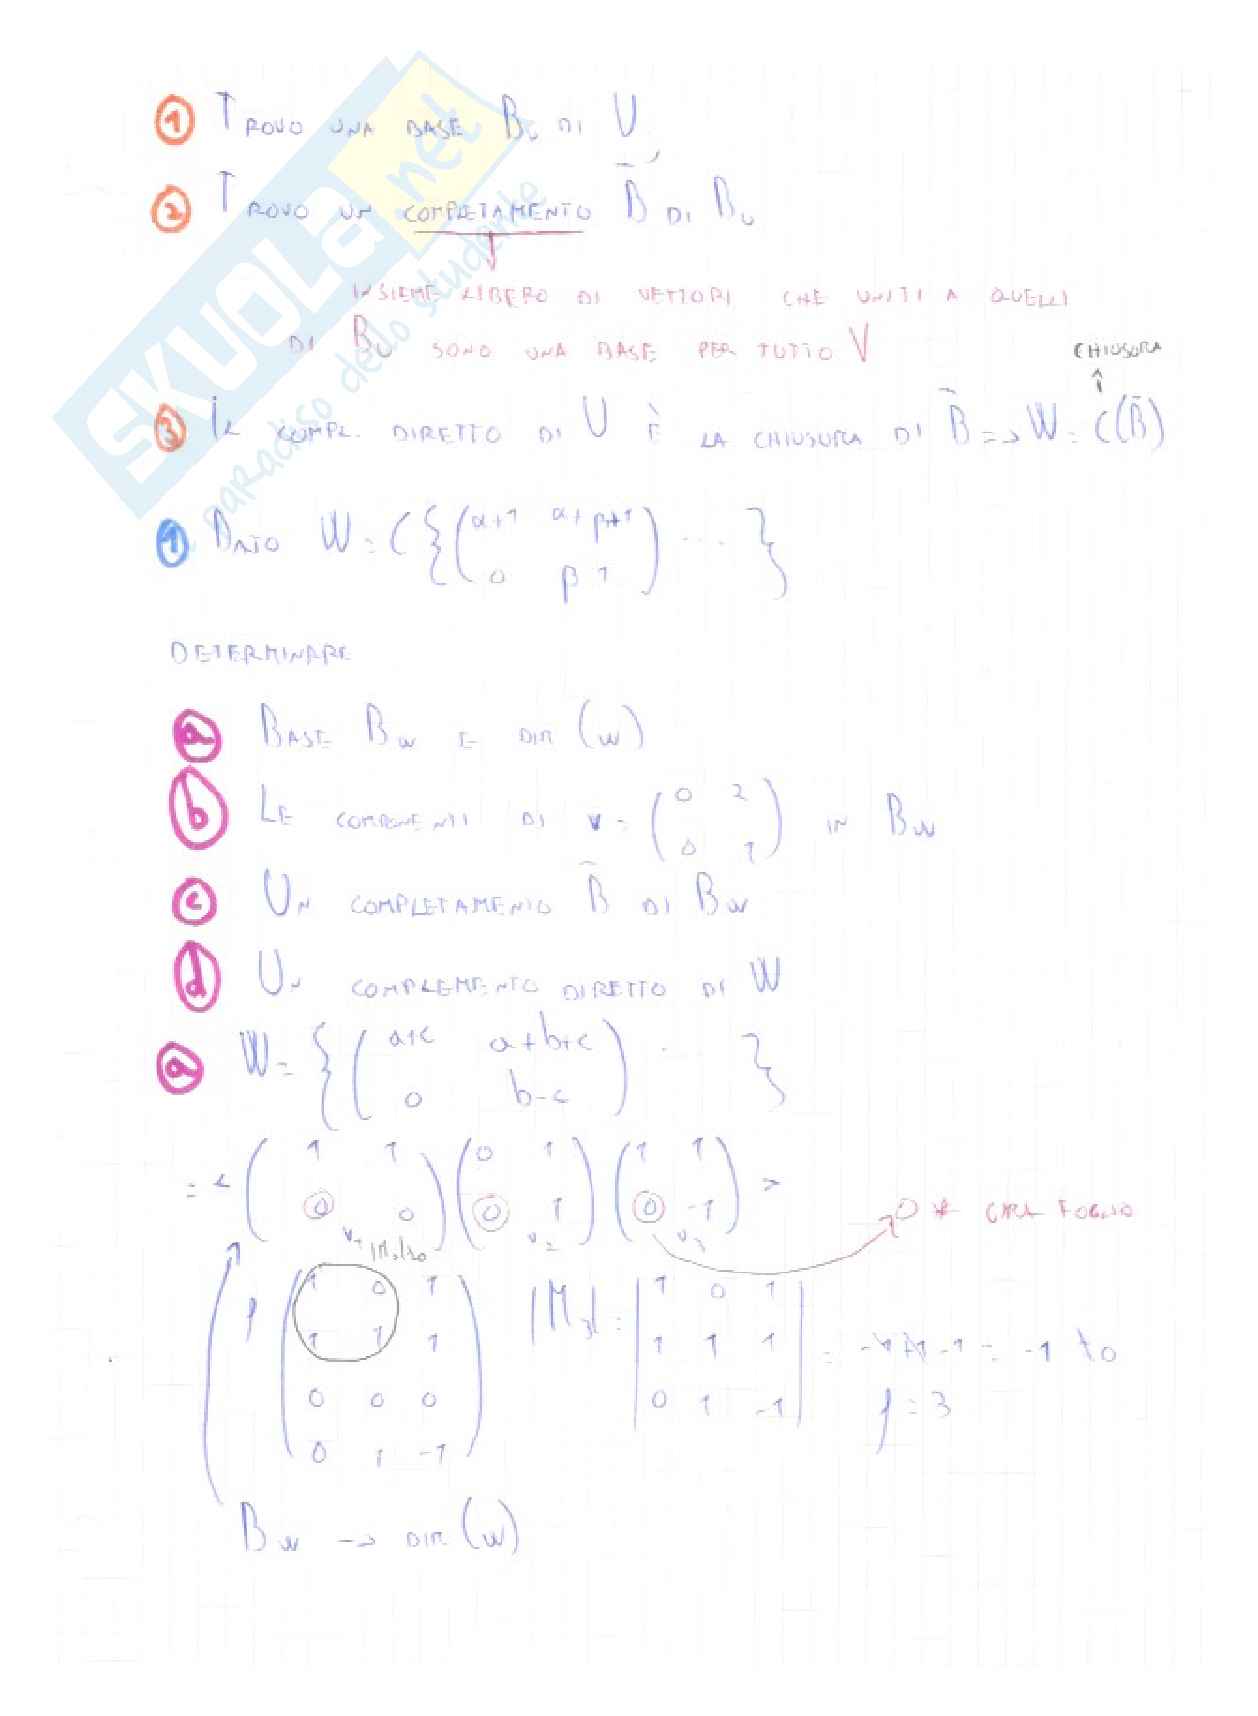 SKUOLA.net
paradiso dello studente
1 TROVO UNA BASE Bᵤ DI U
2 TROVO UN COMPLETAMENTO B̄ DI Bᵤ
INSIEME LIBERO DI VETTORI CHE UNITI A QUELLI
DI Bᵤ SONO UNA BASE PER TUTTO V
CHIUSURA
3 IL COMPL. DIRETTO DI U È LA CHIUSURA DI B̄ => W = C(B̄)
1 DATO W = C { ( α+1 α+β+1
0 β 1 ) ... }
DETERMINARE
a BASE B_W E DIM (W)
b LE COMPONENTI DI v = ( 0 2
0 1 ) IN B_W
c UN COMPLETAMENTO B̄ DI B_W
d UN COMPLEMENTO DIRETTO DI W
a W = { ( a+c a+b+c
0 b-c ) ... }
= < ( 1 1
0 0 ) ( 0 1
0 1 ) ( 1 1
0 -1 ) >
v₁ v₂ v₃
0 *
|M₂|≠0
ρ ( 1 0 1
1 1 1
0 0 0
0 1 -1 )
|M₃| = | 1 0 1
1 1 1
0 1 -1 | = -1+1-1 = -1 ≠0
ρ = 3
B_W -> DIM (W)